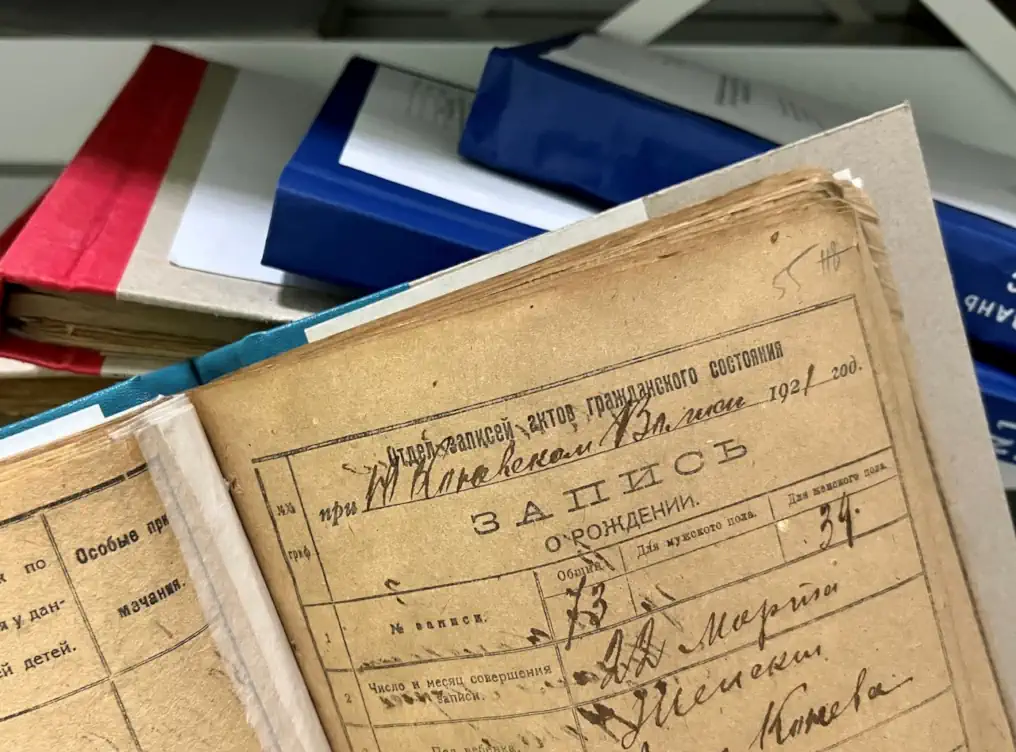 55 118
Отдел записей актов гражданского состояния
при 1921 год.
ЗАПИСЬ
О РОЖДЕНИИ.
№№
граф.
Общий
Для мужского пола.
Для женского пола.
1
№ записи.
73
34.
2
Число и месяц совершения
записи.
22 Марта
Пол ребенка.
Женский
Особые при-
мечания.
по
я у дан-
ей детей.